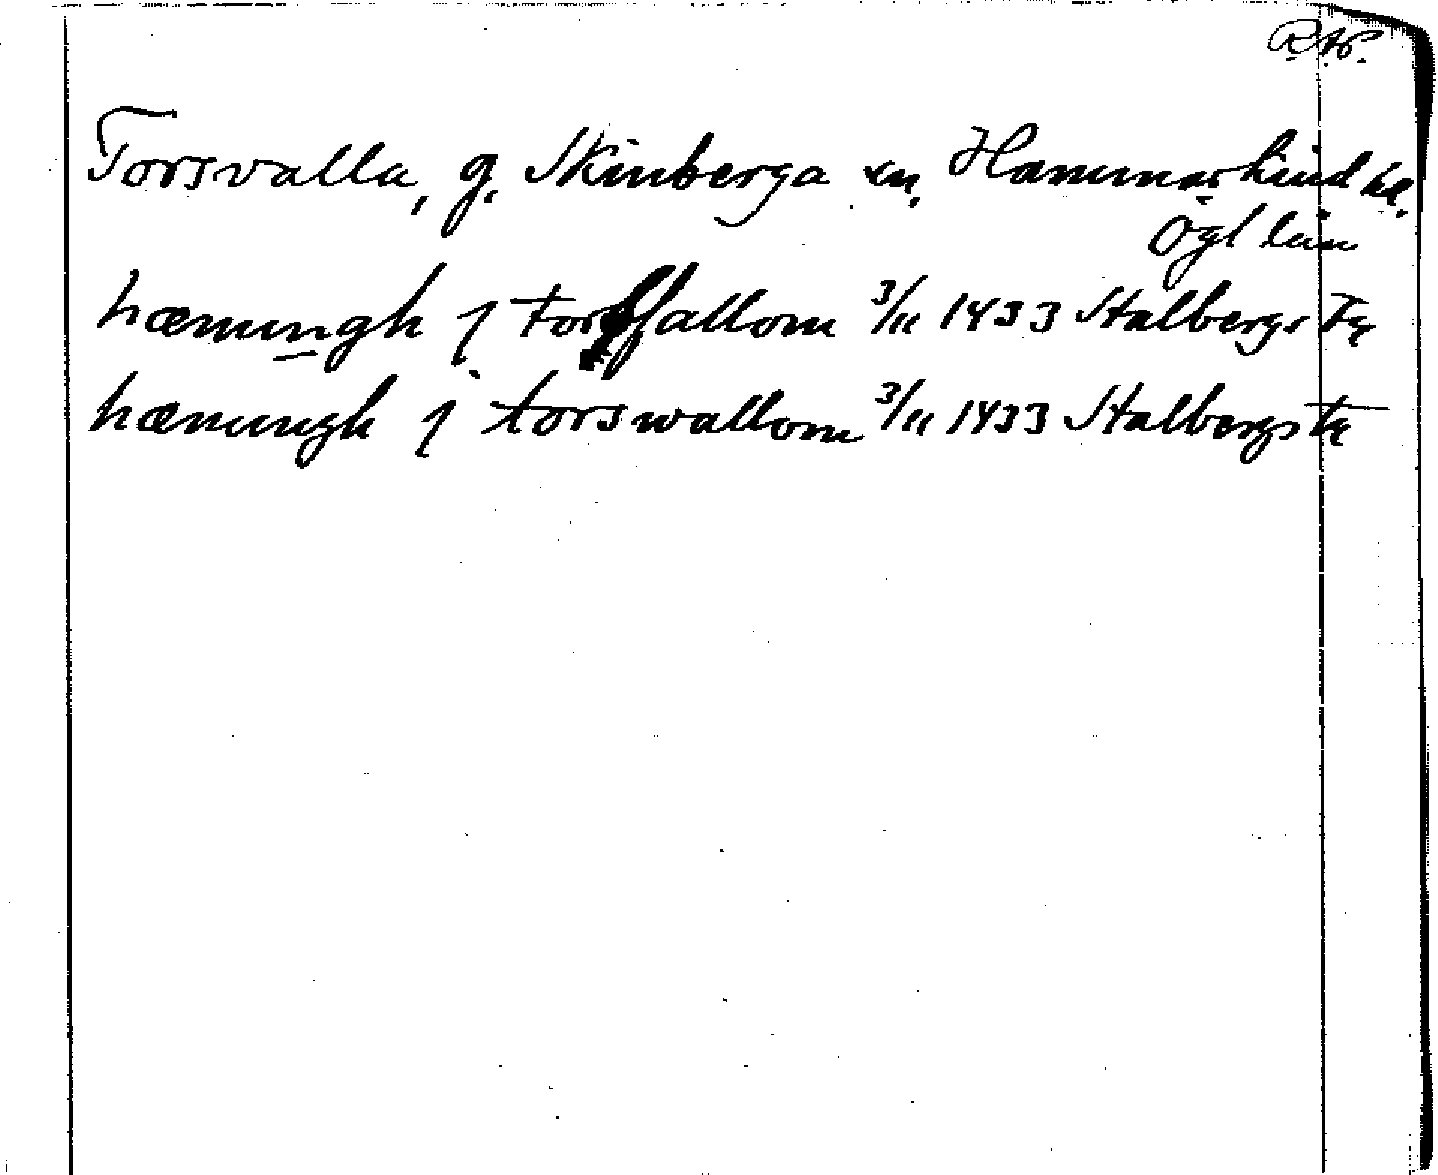 R.W.
Torsvalla, g. Skinberga sn. Hammarkind hd.
Ögl län
hæmungh j torffallom 3/11 1433 Stalbergs Fq
hæmungh j torswallom 3/11 1433 Stalbergs Fq